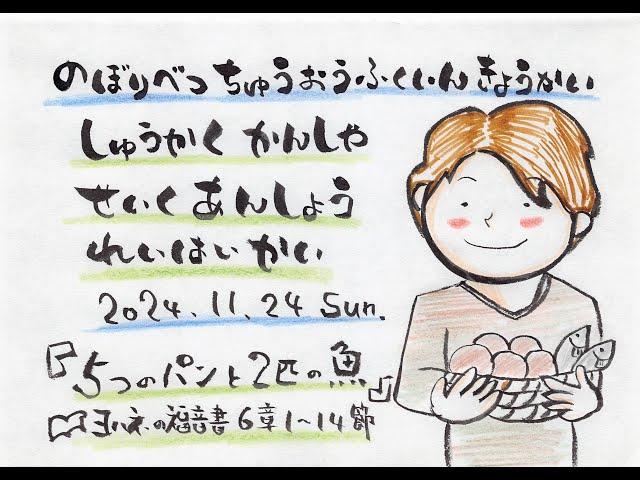 のぼりべつちゅうおうふくいんきょうかい
しゅうかく かんしゃ
せいくあんしょう
れいはいかい
2024.11.24 Sun.
『5つのパンと2匹の魚』
ヨハネの福音書6章1〜14節